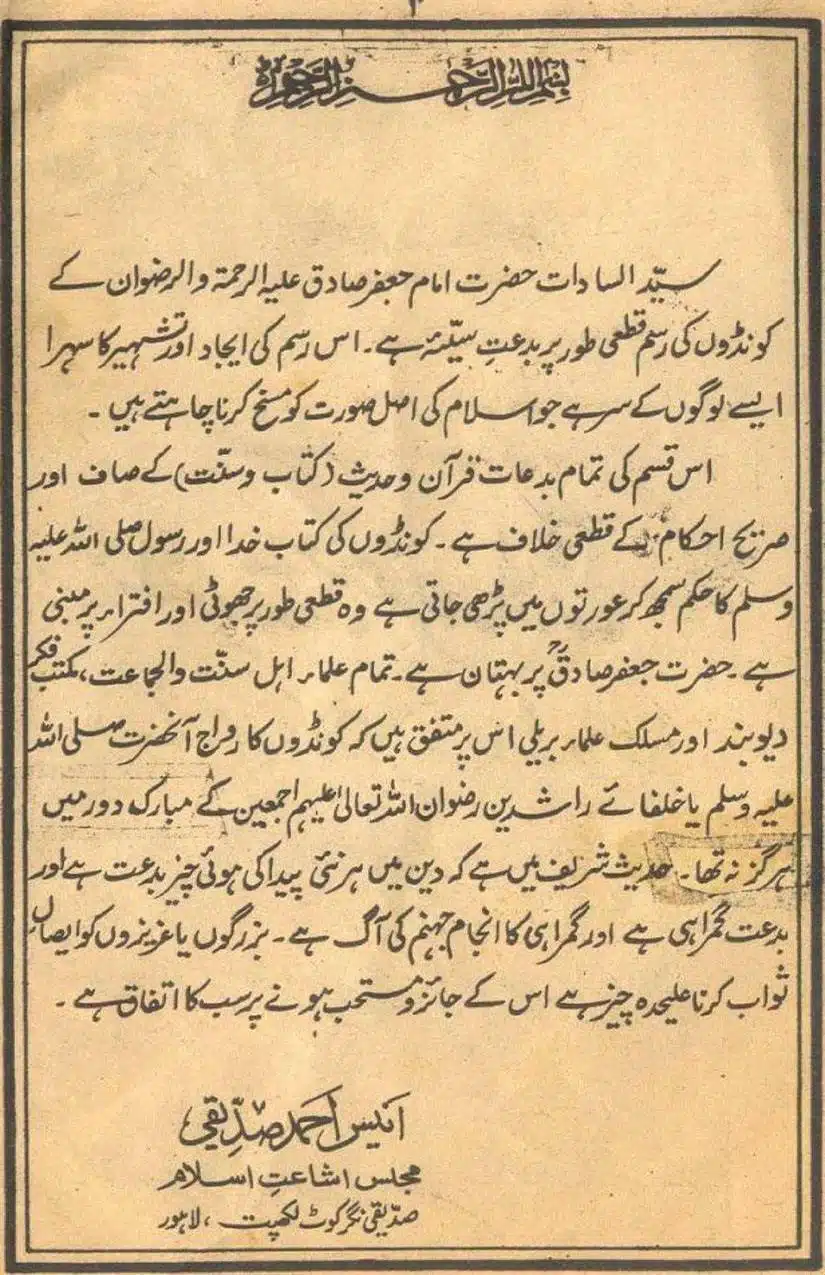 ۲
بسم اللہ الرحمن الرحیم
سیّد السادات حضرت امام جعفر صادق علیہ الرحمۃ والرضوان کے
کونڈوں کی رسم قطعی طور پر بدعتِ سیّئہ ہے۔ اس رسم کی ایجاد اور تشہیر کا سہرا
ایسے لوگوں کے سر ہے جو اسلام کی اصل صورت کو مسخ کرنا چاہتے ہیں۔
اس قسم کی تمام بدعات قرآن وحدیث (کتاب وسنّت) کے صاف اور
صریح احکام کے قطعی خلاف ہے۔ کونڈوں کی کتاب خدا اور رسول صلی اللہ علیہ
وسلم کا حکم سمجھ کر عورتوں میں پڑھی جاتی ہے وہ قطعی طور پر جھوٹی اور افتراء پر مبنی
ہے۔ حضرت جعفر صادقؒ پر بہتان ہے۔ تمام علماء اہل سنّت والجماعت، مکتب فکر
دیوبند اور مسلک علماء بریلی اس پر متفق ہیں کہ کونڈوں کا رواج آنحضرت صلی اللہ
علیہ وسلم یا خلفائے راشدین رضوان اللہ تعالیٰ علیہم اجمعین کے مبارک دور میں
ہرگز نہ تھا۔ حدیث شریف میں ہے کہ دین میں ہر نئی پیدا کی ہوئی چیز بدعت ہے اور
بدعت گمراہی ہے اور گمراہی کا انجام جہنم کی آگ ہے۔ بزرگوں یا عزیزوں کو ایصالِ
ثواب کرنا علیحدہ چیز ہے اس کے جائز و مستحب ہونے پر سب کا اتفاق ہے۔
انیس احمد صدّیقی
مجلس اشاعتِ اسلام
صدّیقی نگر کوٹ لکھپت، لاہور